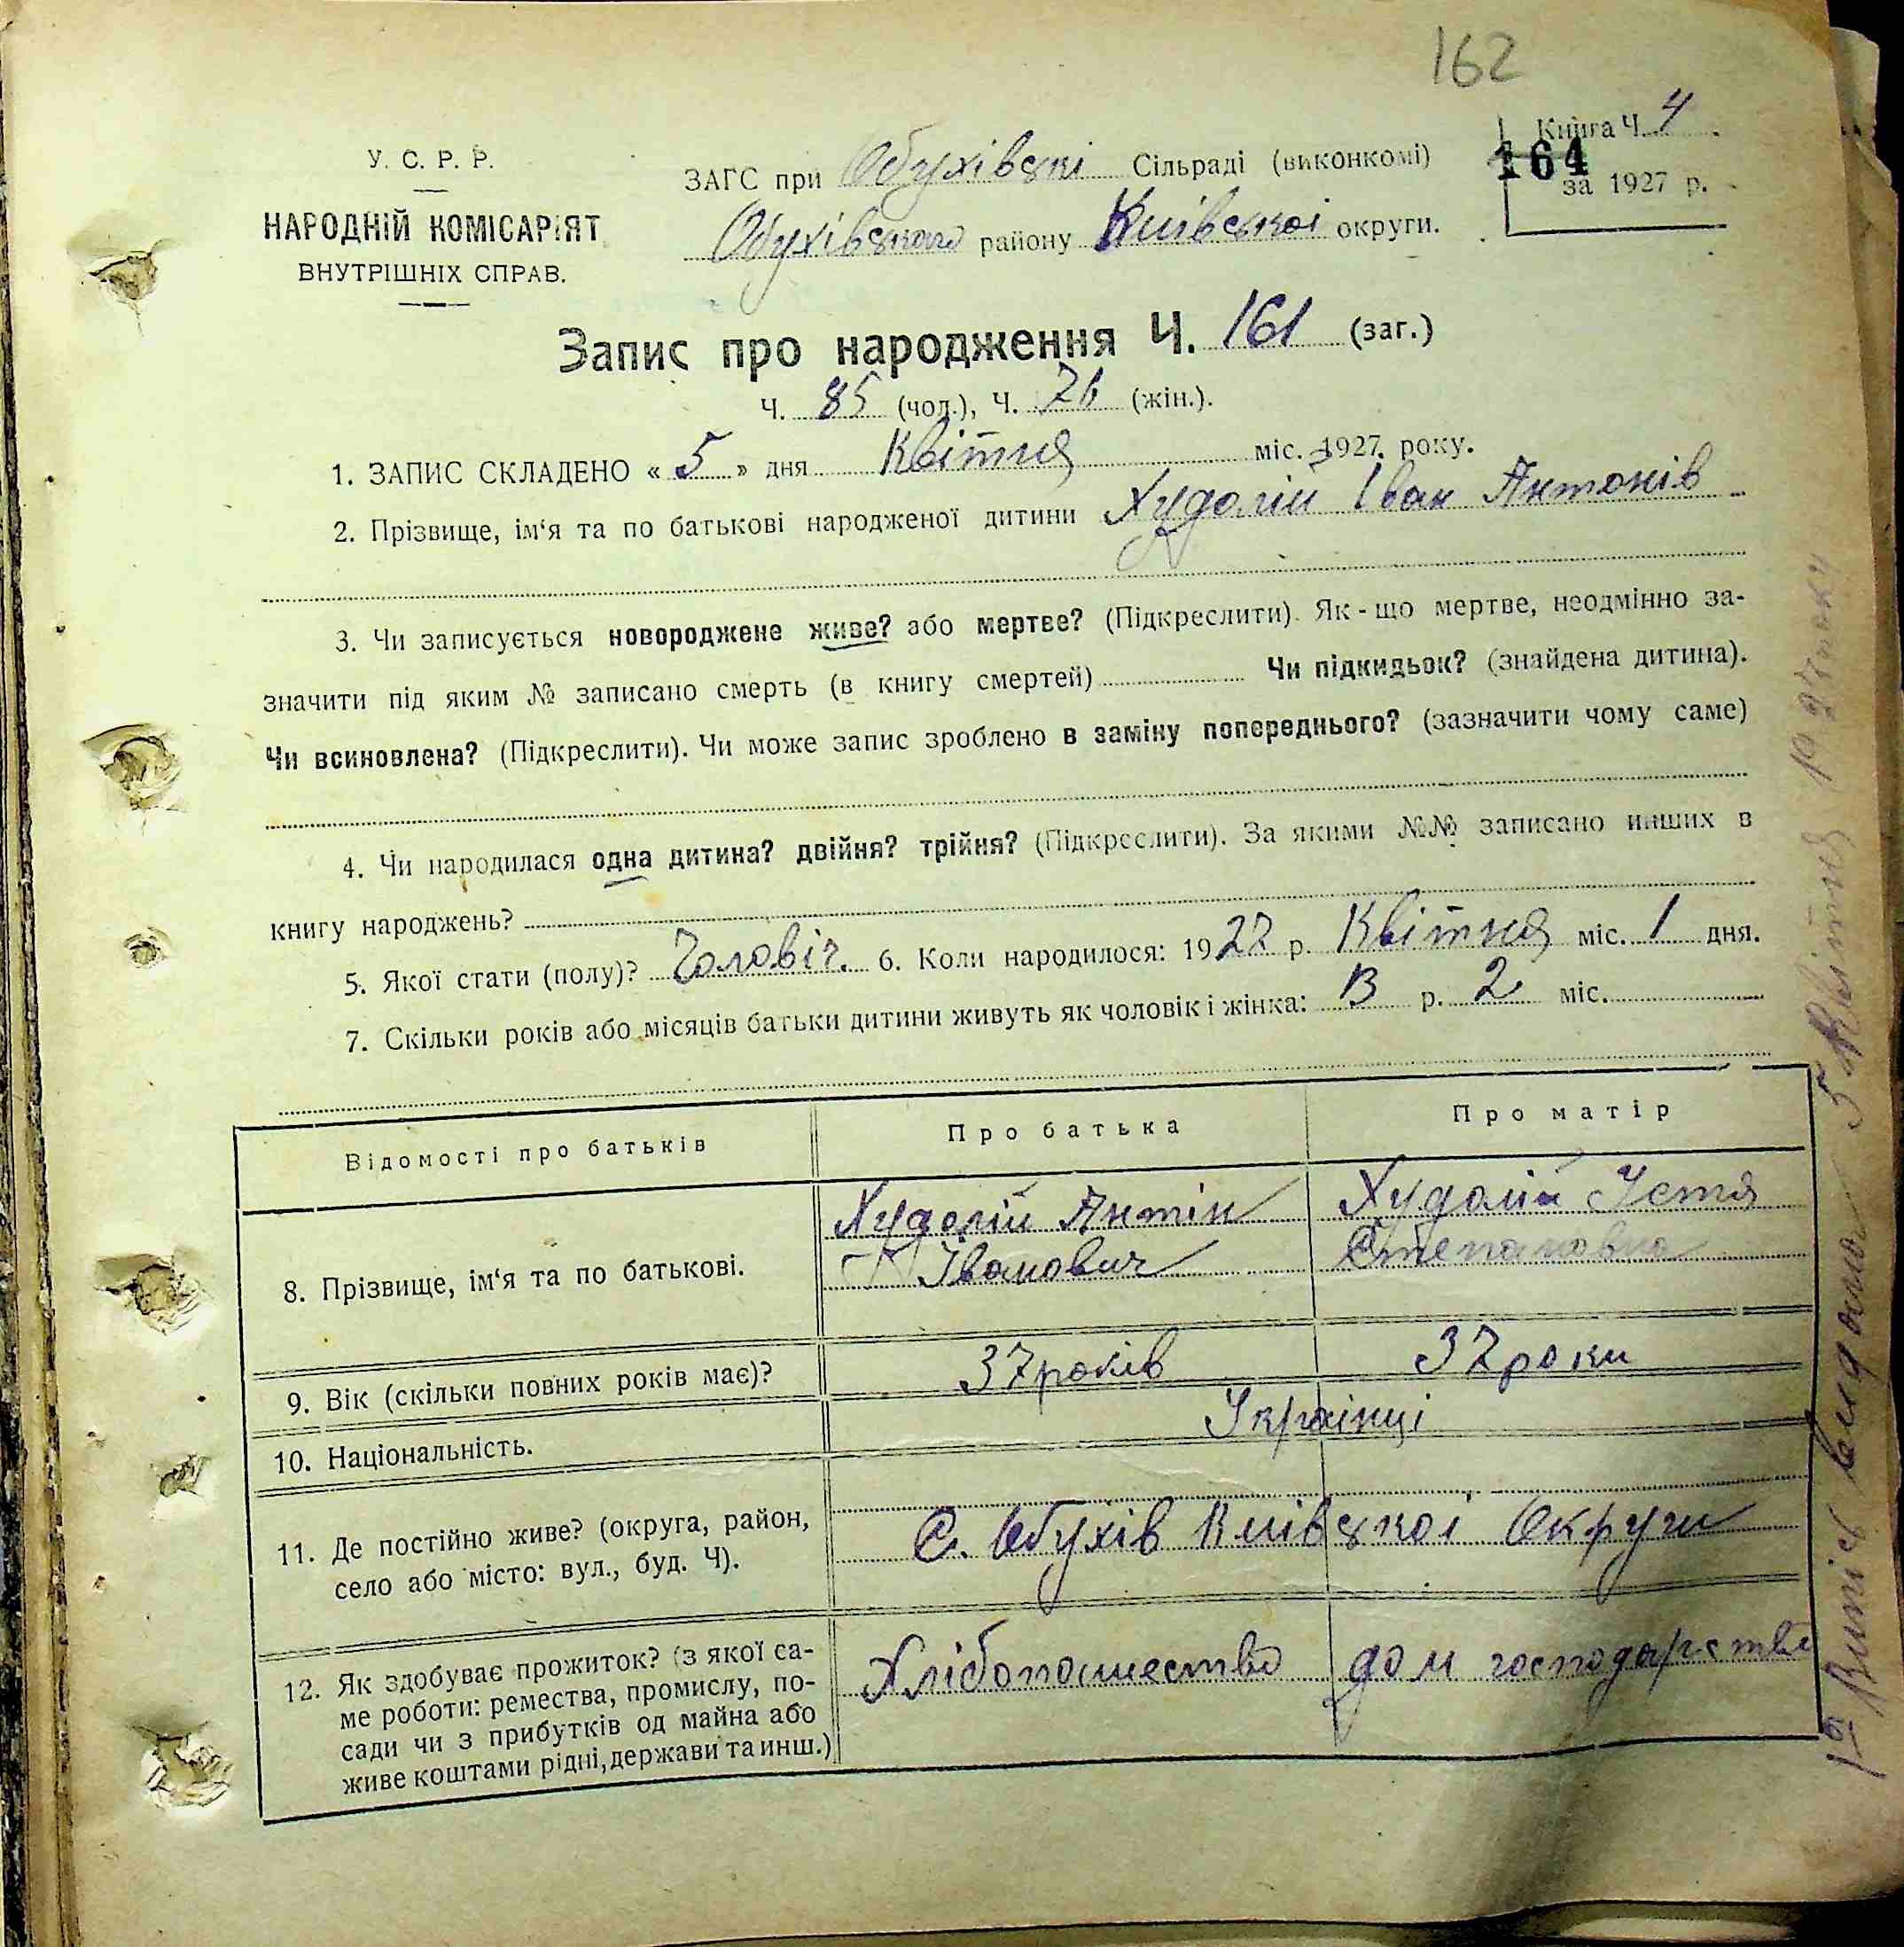 162
У. С. Р. Р.
НАРОДНІЙ КОМІСАРІЯТ
ВНУТРІШНІХ СПРАВ.
ЗАГС при Обухівскі Сільраді (виконкомі)
Обухівського району Київської округи.
Книга Ч. 4
164
за 1927 р.
Запис про народження Ч. 161 (заг.)
Ч. 85 (чол.), Ч. 76 (жін.).
1. ЗАПИС СКЛАДЕНО « 5 » дня Квітня міс. 1927 року.
2. Прізвище, ім'я та по батькові народженої дитини Худолій Іван Антонів
3. Чи записується новороджене живе? або мертве? (Підкреслити). Як-що мертве, неодмінно за-
значити під яким № записано смерть (в книгу смертей) Чи підкидьок? (знайдена дитина).
Чи всиновлена? (Підкреслити). Чи може запис зроблено в заміну попереднього? (зазначити чому саме)
4. Чи народилася одна дитина? двійня? трійня? (Підкреслити). За якими №№ записано инших в
книгу народжень?
5. Якої стати (полу)? Чоловіч. 6. Коли народилося: 1927 р. Квітня міс. 1 дня.
7. Скільки років або місяців батьки дитини живуть як чоловік і жінка: р. 2 міс.
Відомості про батьків Про батька Про матір
8. Прізвище, ім'я та по батькові.
Худолій Антін
Іванович
Худолій Устя
Степановна
9. Вік (скільки повних років має)? 37 років 37 роки
10. Національність. Українці
11. Де постійно живе? (округа, район,
село або місто: вул., буд. Ч).
С. Обухів Київської Округи
12. Як здобуває прожиток? (з якої са-
ме роботи: ремества, промислу, по-
сади чи з прибутків од майна або
живе коштами рідні, держави та инш.)
Хлібопашество
дом господарство
Витяг видано 5 Квітня 1927 року